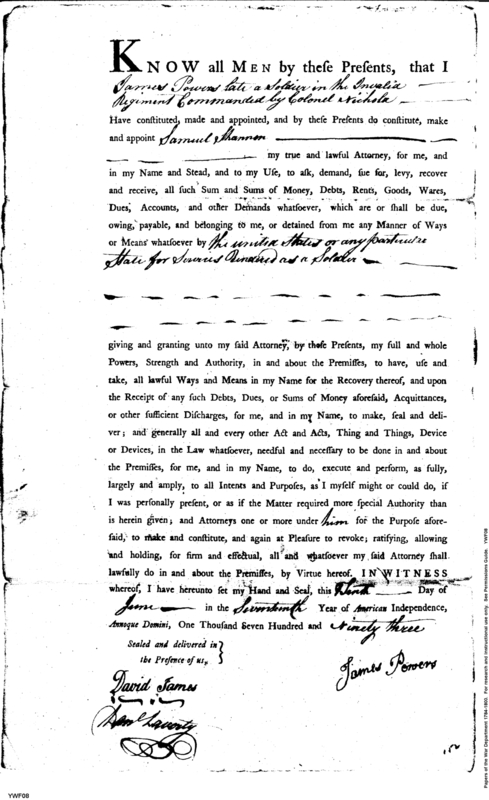 KNOW all MEN by theſe Preſents, that I
James Powers late a Soldier in the Invalid
Regiment Commanded by Colonel Nichola
Have conſtituted, made and appointed, and by theſe Preſents do conſtitute, make
and appoint Samuel Shannon
my true and lawful Attorney, for me, and
in my Name and Stead, and to my Uſe, to aſk, demand, ſue for, levy, recover
and receive, all ſuch Sum and Sums of Money, Debts, Rents, Goods, Wares,
Dues, Accounts, and other Demands whatſoever, which are or ſhall be due,
owing, payable, and belonging to me, or detained from me any Manner of Ways
or Means whatſoever by the united States or any particulre
State for Services Rendered as a Soldier
giving and granting unto my ſaid Attorney, by theſe Preſents, my full and whole
Powers, Strength and Authority, in and about the Premiſſes, to have, uſe and
take, all lawful Ways and Means in my Name for the Recovery thereof, and upon
the Receipt of any ſuch Debts, Dues, or Sums of Money aforeſaid, Acquittances,
or other ſufficient Diſcharges, for me, and in my Name, to make, ſeal and deli-
ver; and generally all and every other Act and Acts, Thing and Things, Device
or Devices, in the Law whatſoever, needful and neceſſary to be done in and about
the Premiſſes, for me, and in my Name, to do, execute and perform, as fully,
largely and amply, to all Intents and Purpoſes, as I myſelf might or could do, if
I was perſonally preſent, or as if the Matter required more ſpecial Authority than
is herein given; and Attorneys one or more under him for the Purpoſe afore-
ſaid, to make and conſtitute, and again at Pleaſure to revoke; ratifying, allowing
and holding, for firm and effectual, all and whatſoever my ſaid Attorney ſhall
lawfully do in and about the Premiſſes, by Virtue hereof. IN WITNESS
whereof, I have hereunto ſet my Hand and Seal, this Tenth Day of
June in the Seventeenth Year of American Independence,
Annoque Domini, One Thouſand Seven Hundred and Ninety three
Sealed and delivered in
the Preſence of us,
James Powers
David James
YWF08
Papers of the War Department 1784-1800. For research and instructional use only. See Permissions Guide. YWF08